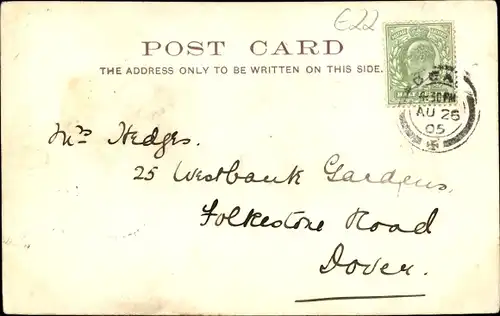 £22
POST CARD
THE ADDRESS ONLY TO BE WRITTEN ON THIS SIDE.
4.30PM
AU 26
05
Mrs Hedges.
25 Westbank Gardens,
Folkestone Road
Dover.